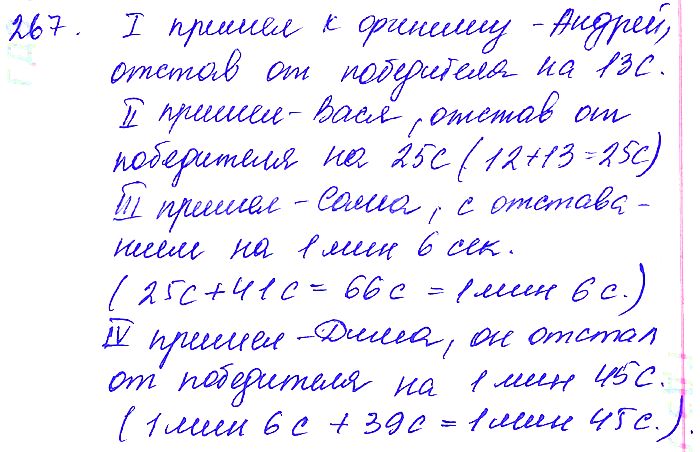 267. I пришел к финишу - Андрей,
отстав от победителя на 13с.
II пришел - Вася, отстав от
победителя на 25с (12+13=25с)
III пришел - Саша, с отстава-
нием на 1 мин 6 сек.
(25с+41с=66с=1мин 6с.)
IV пришел - Дима, он отстал
от победителя на 1 мин 45с.
(1мин 6с + 39с = 1мин 45с.).